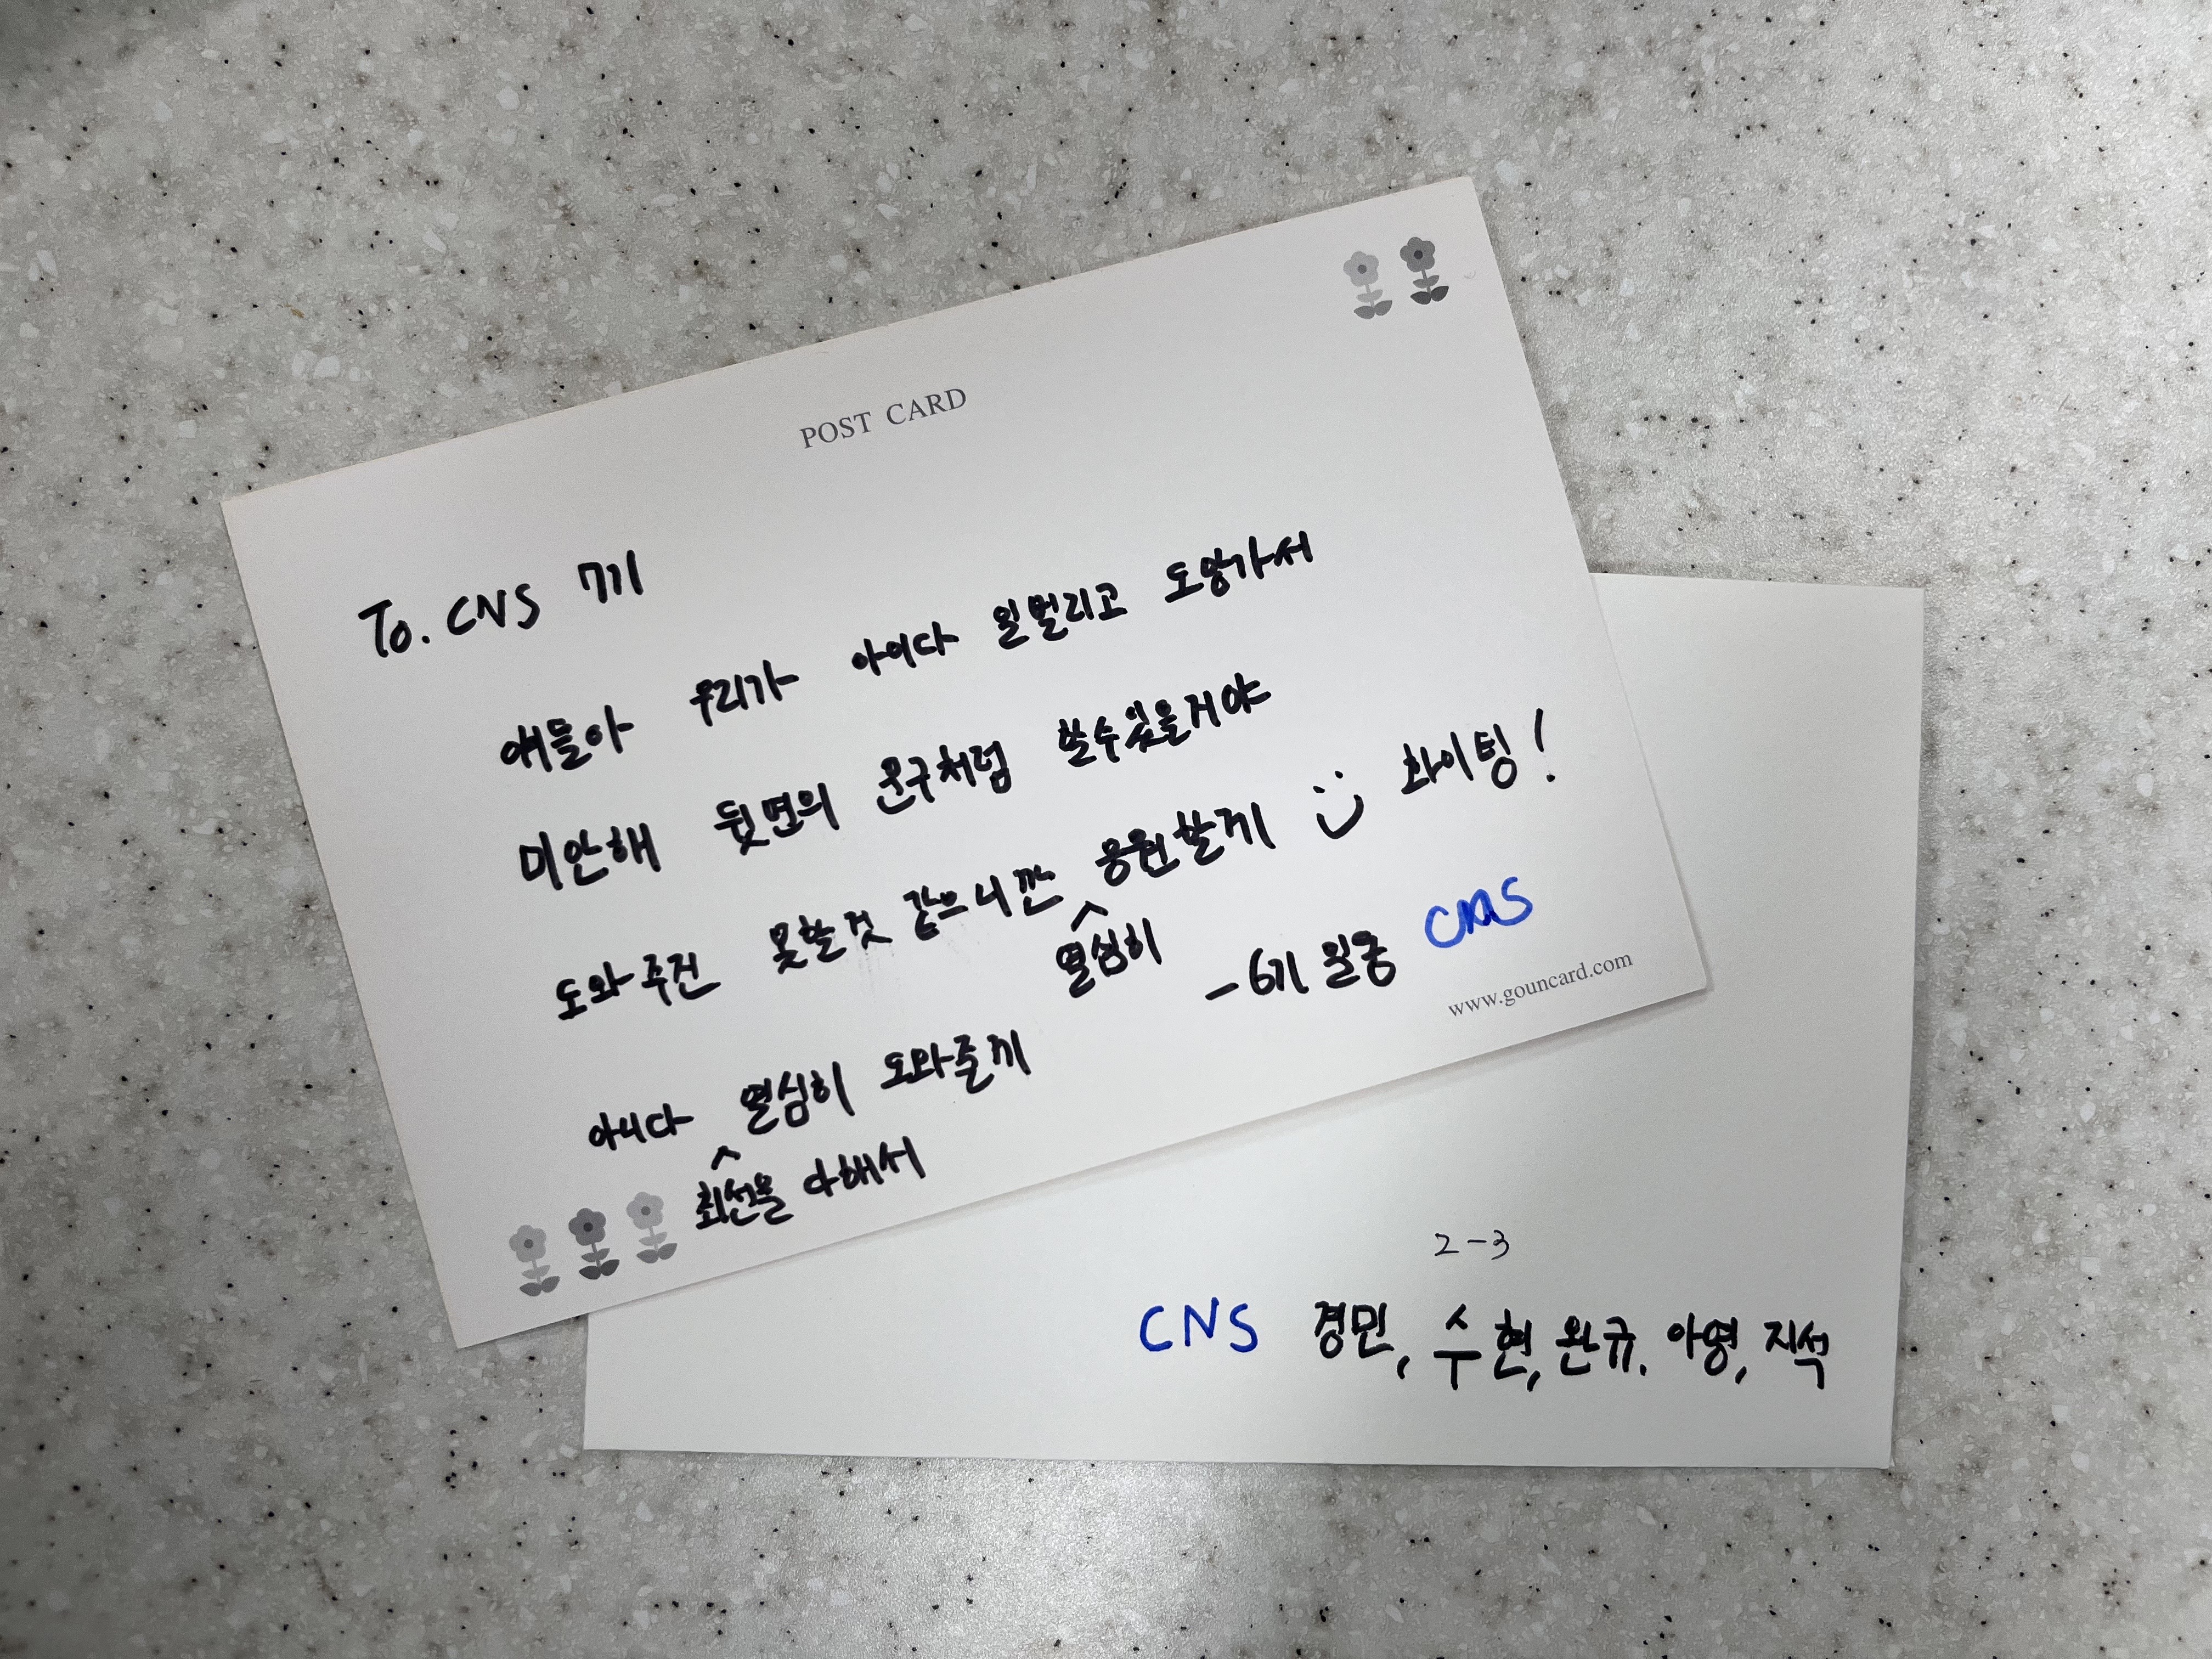 POST CARD
To. CNS 7기
얘들아 우리가 아이다 일벌리고 도망가서
미안해 뒷면의 문구처럼 할수있을거야
도와주진 못할것 같으니깐 응원할게 :) 화이팅!
열심히
-6기 일동 CNS
www.gouncard.com
아니다 열심히 도와줄게
최선을 다해서
2-3
CNS 경민, 수현, 완규. 아영, 지석